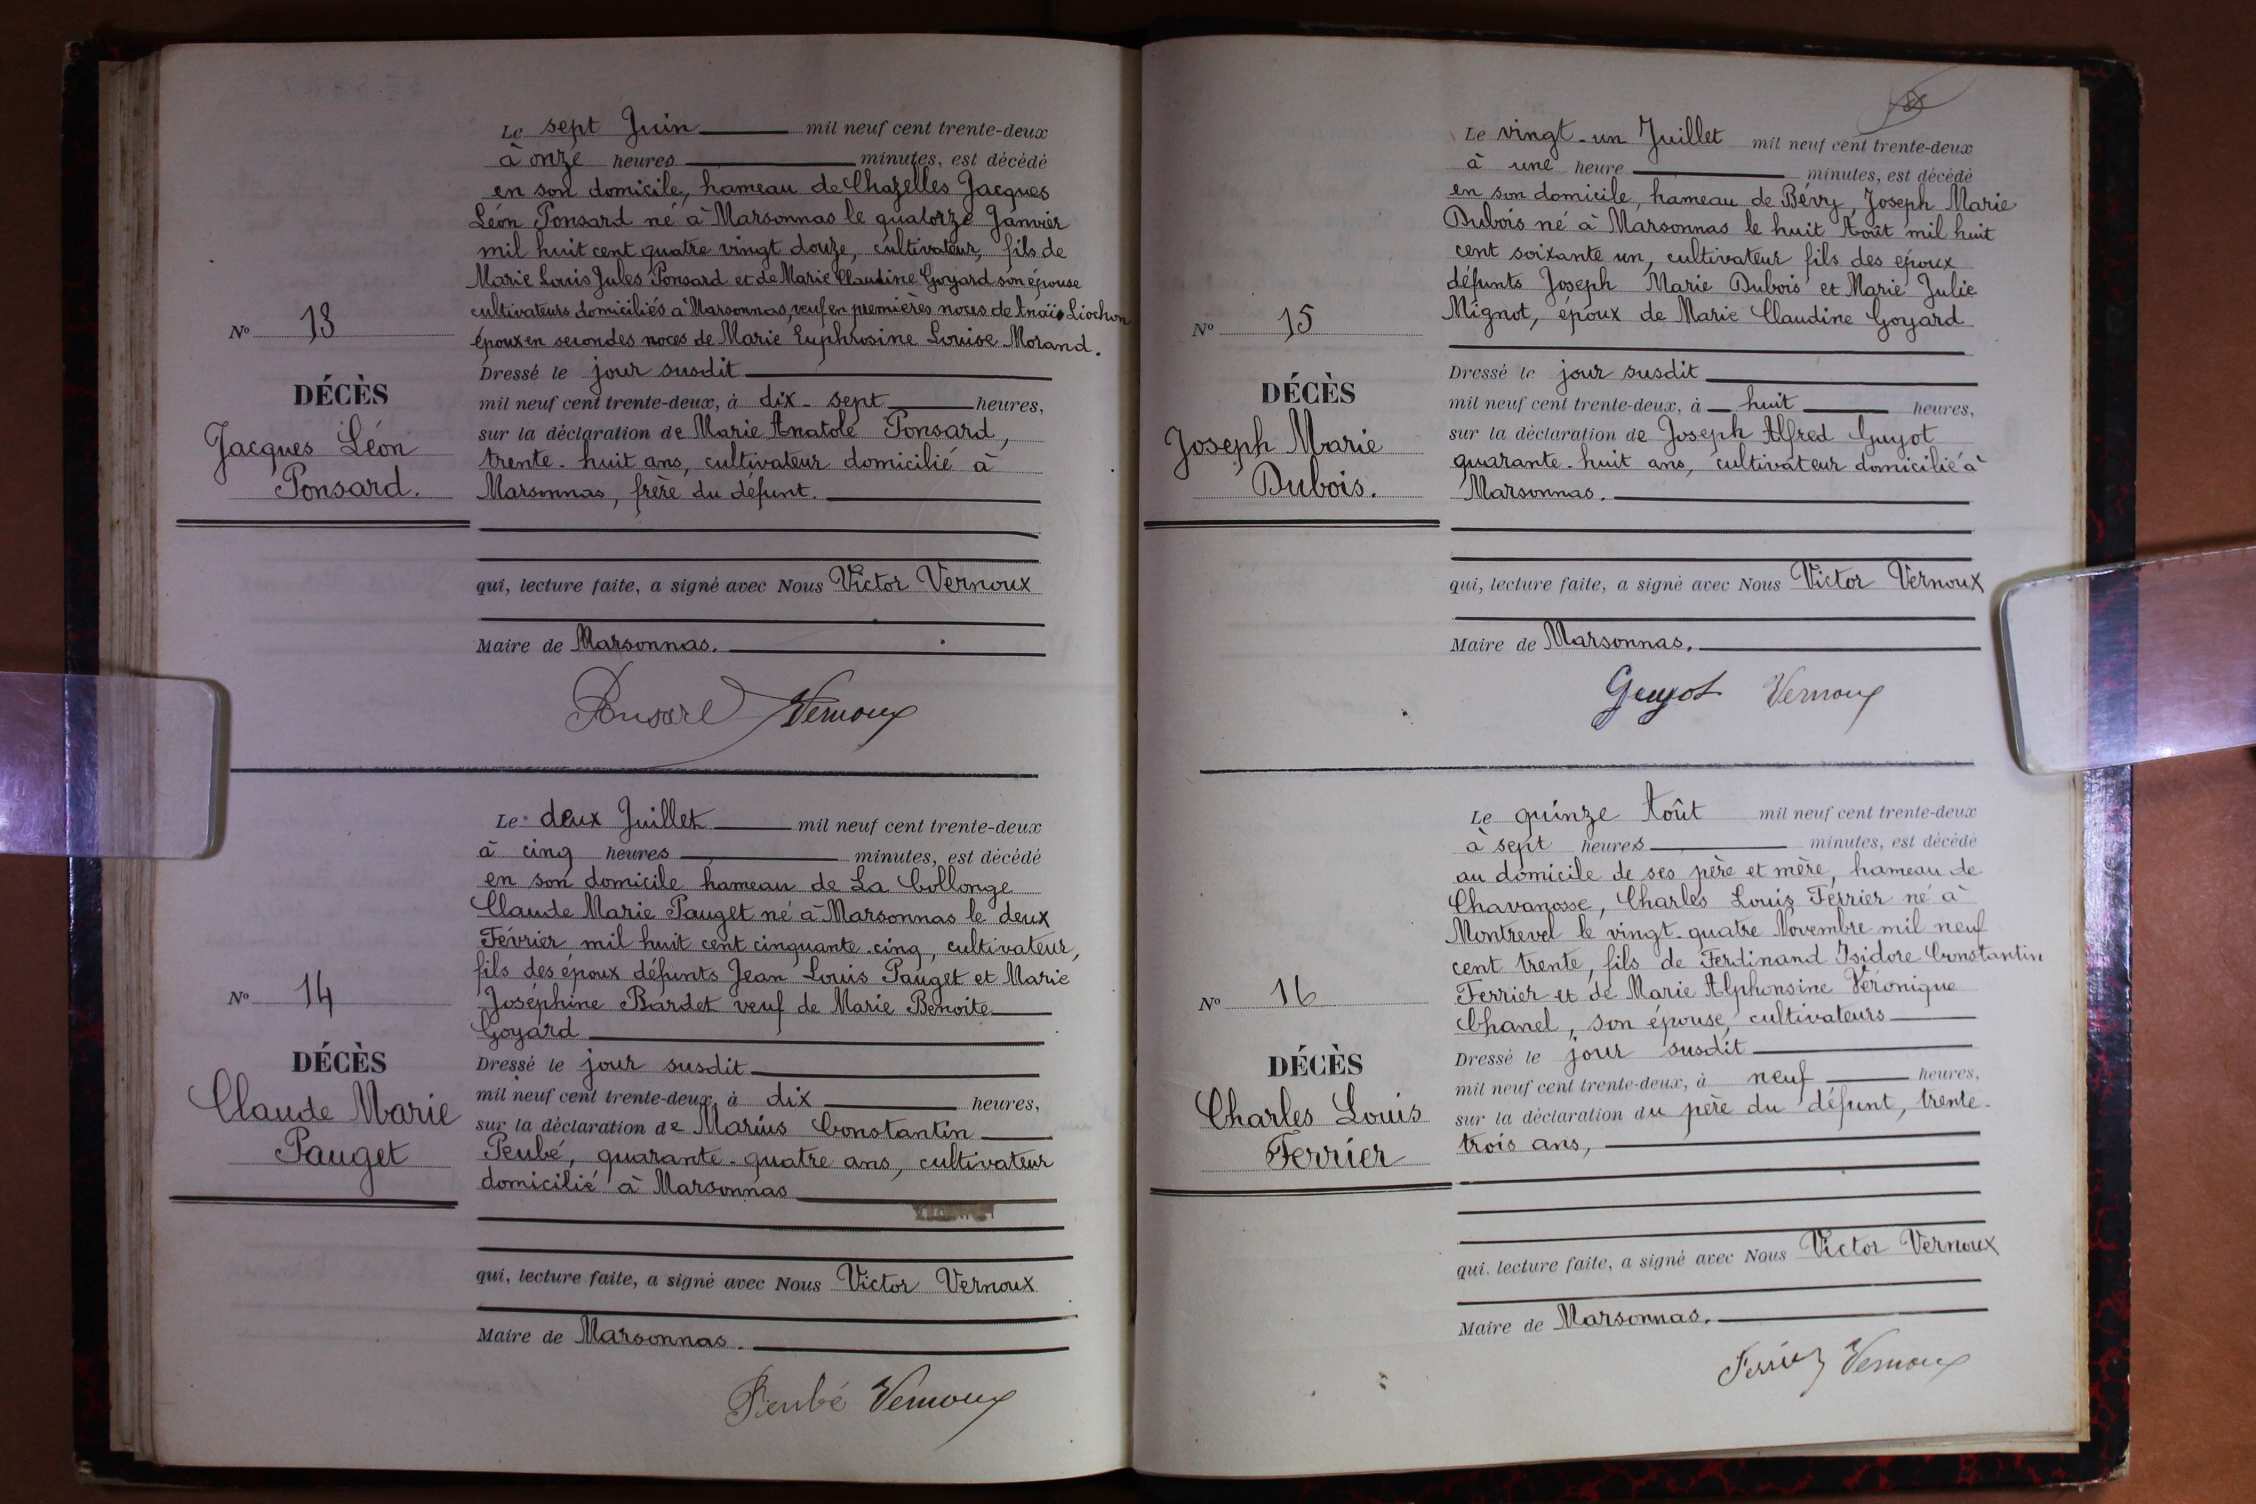 Le sept Juin mil neuf cent trente-deux
à onze heures minutes, est décédé
en son domicile, hameau de Chazelles Jacques
Léon Ponsard né à Marsonnas le quatorze Janvier
mil huit cent quatre vingt douze, cultivateur, fils de
Marie Louis Jules Ponsard et de Marie Claudine Goyard son épouse
cultivateurs domiciliés à Marsonnas, veuf en premières noces de Anaïs Liochon
époux en secondes noces de Marie Euphrosine Louise Morand.
Nº 13
DÉCÈS
Jacques Léon
Ponsard.
Dressé le jour susdit
mil neuf cent trente-deux, à dix-sept heures,
sur la déclaration de Marie Anatole Ponsard,
trente-huit ans, cultivateur domicilié à
Marsonnas, frère du défunt.
qui, lecture faite, a signé avec Nous Victor Vernoux
Maire de Marsonnas.
Ponsard Vernoux
Le deux Juillet mil neuf cent trente-deux
à cinq heures minutes, est décédé
en son domicile hameau de La Collonge
Claude Marie Pauget né à Marsonnas le deux
Février mil huit cent cinquante-cinq, cultivateur,
fils des époux défunts Jean Louis Pauget et Marie
Joséphine Bardet veuf de Marie Benoite
Goyard
Nº 14
DÉCÈS
Claude Marie
Pauget
Dressé le jour susdit
mil neuf cent trente-deux, à dix heures,
sur la déclaration de Marius Constantin
Peubé, quarante-quatre ans, cultivateur
domicilié à Marsonnas
qui, lecture faite, a signé avec Nous Victor Vernoux
Maire de Marsonnas.
Peubé Vernoux
Le vingt-un Juillet mil neuf cent trente-deux
à une heure minutes, est décédé
en son domicile, hameau de Bévry, Joseph Marie
Dubois né à Marsonnas le huit Août mil huit
cent soixante un, cultivateur fils des époux
défunts Joseph Marie Dubois et Marie Julie
Mignot, époux de Marie Claudine Goyard
Nº 15
DÉCÈS
Joseph Marie
Dubois.
Dressé le jour susdit
mil neuf cent trente-deux, à huit heures,
sur la déclaration de Joseph Alfred Guyot
quarante-huit ans, cultivateur domicilié à
Marsonnas.
qui, lecture faite, a signé avec Nous Victor Vernoux
Maire de Marsonnas.
Guyot Vernoux
Le quinze Août mil neuf cent trente-deux
à sept heures minutes, est décédé
au domicile de ses père et mère, hameau de
Chavanosse, Charles Louis Ferrier né à
Montrevel le vingt-quatre Novembre mil neuf
cent trente, fils de Ferdinand Isidore Constantin
Ferrier et de Marie Alphonsine Véronique
Chanel, son épouse, cultivateurs
Nº 16
DÉCÈS
Charles Louis
Ferrier
Dressé le jour susdit
mil neuf cent trente-deux, à neuf heures,
sur la déclaration du père du défunt, trente-
trois ans,
qui, lecture faite, a signé avec Nous Victor Vernoux
Maire de Marsonnas.
Ferrier Vernoux